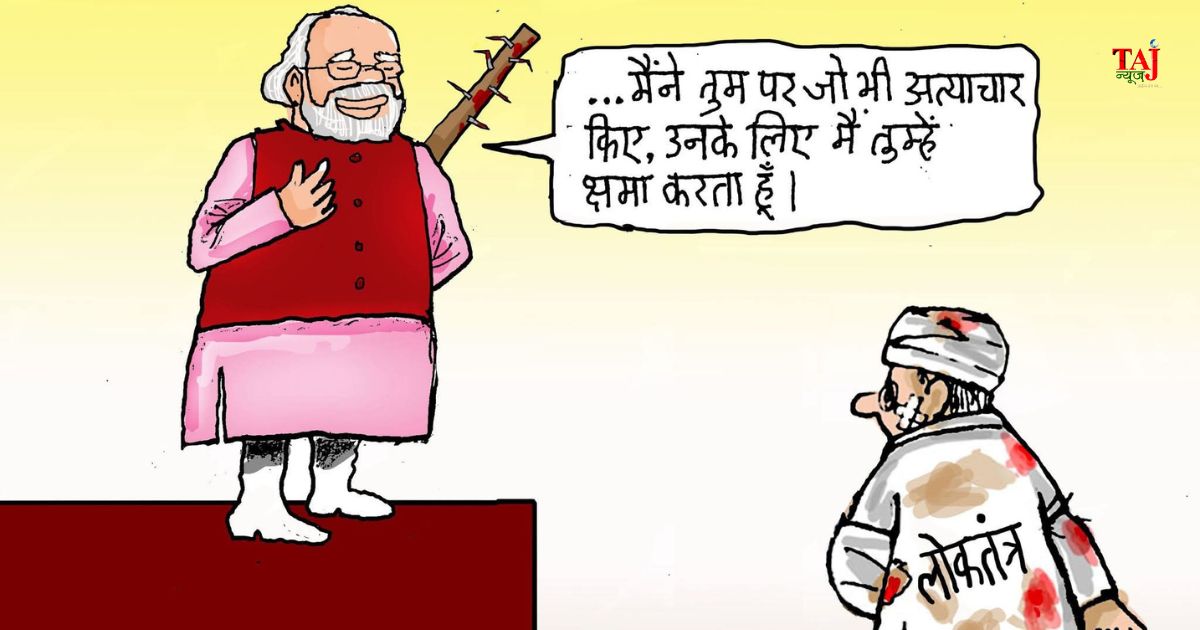 TAJ
न्यूज़
...मैंने तुम पर जो भी अत्याचार
किए, उनके लिए मैं तुम्हें
क्षमा करता हूँ।
लोकतंत्र